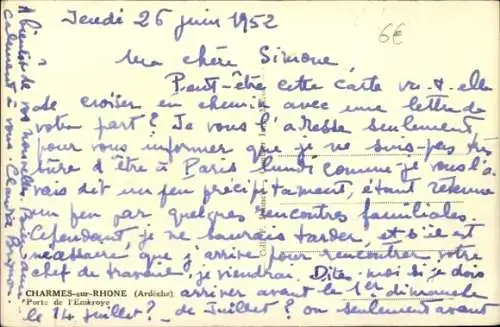 Jeudi 26 juin 1952
6€
Ma chère Simone,
Peut-être cette carte va-t-elle
se croiser en chemin avec une lettre de
votre part? Je vous l'adresse seulement
pour vous informer que je ne suis pas très
sûre d'être à Paris lundi comme je vous l'a-
vais dit un peu précipitamment, étant retenue
un peu par quelques rencontres familiales.
Cependant, je ne saurais tarder, et s'il est
nécessaire que j'arrive pour rencontrer votre
chef de travail je viendrai. Dites-moi si je dois
arriver avant le 1er dimanche
de Juillet? ou seulement avant
le 14 juillet?
CHARMES-sur-RHONE (Ardèche)
Porte de l'Emkroye
A bientôt de vos nouvelles. Bien ami-
calement à vous. Claudie